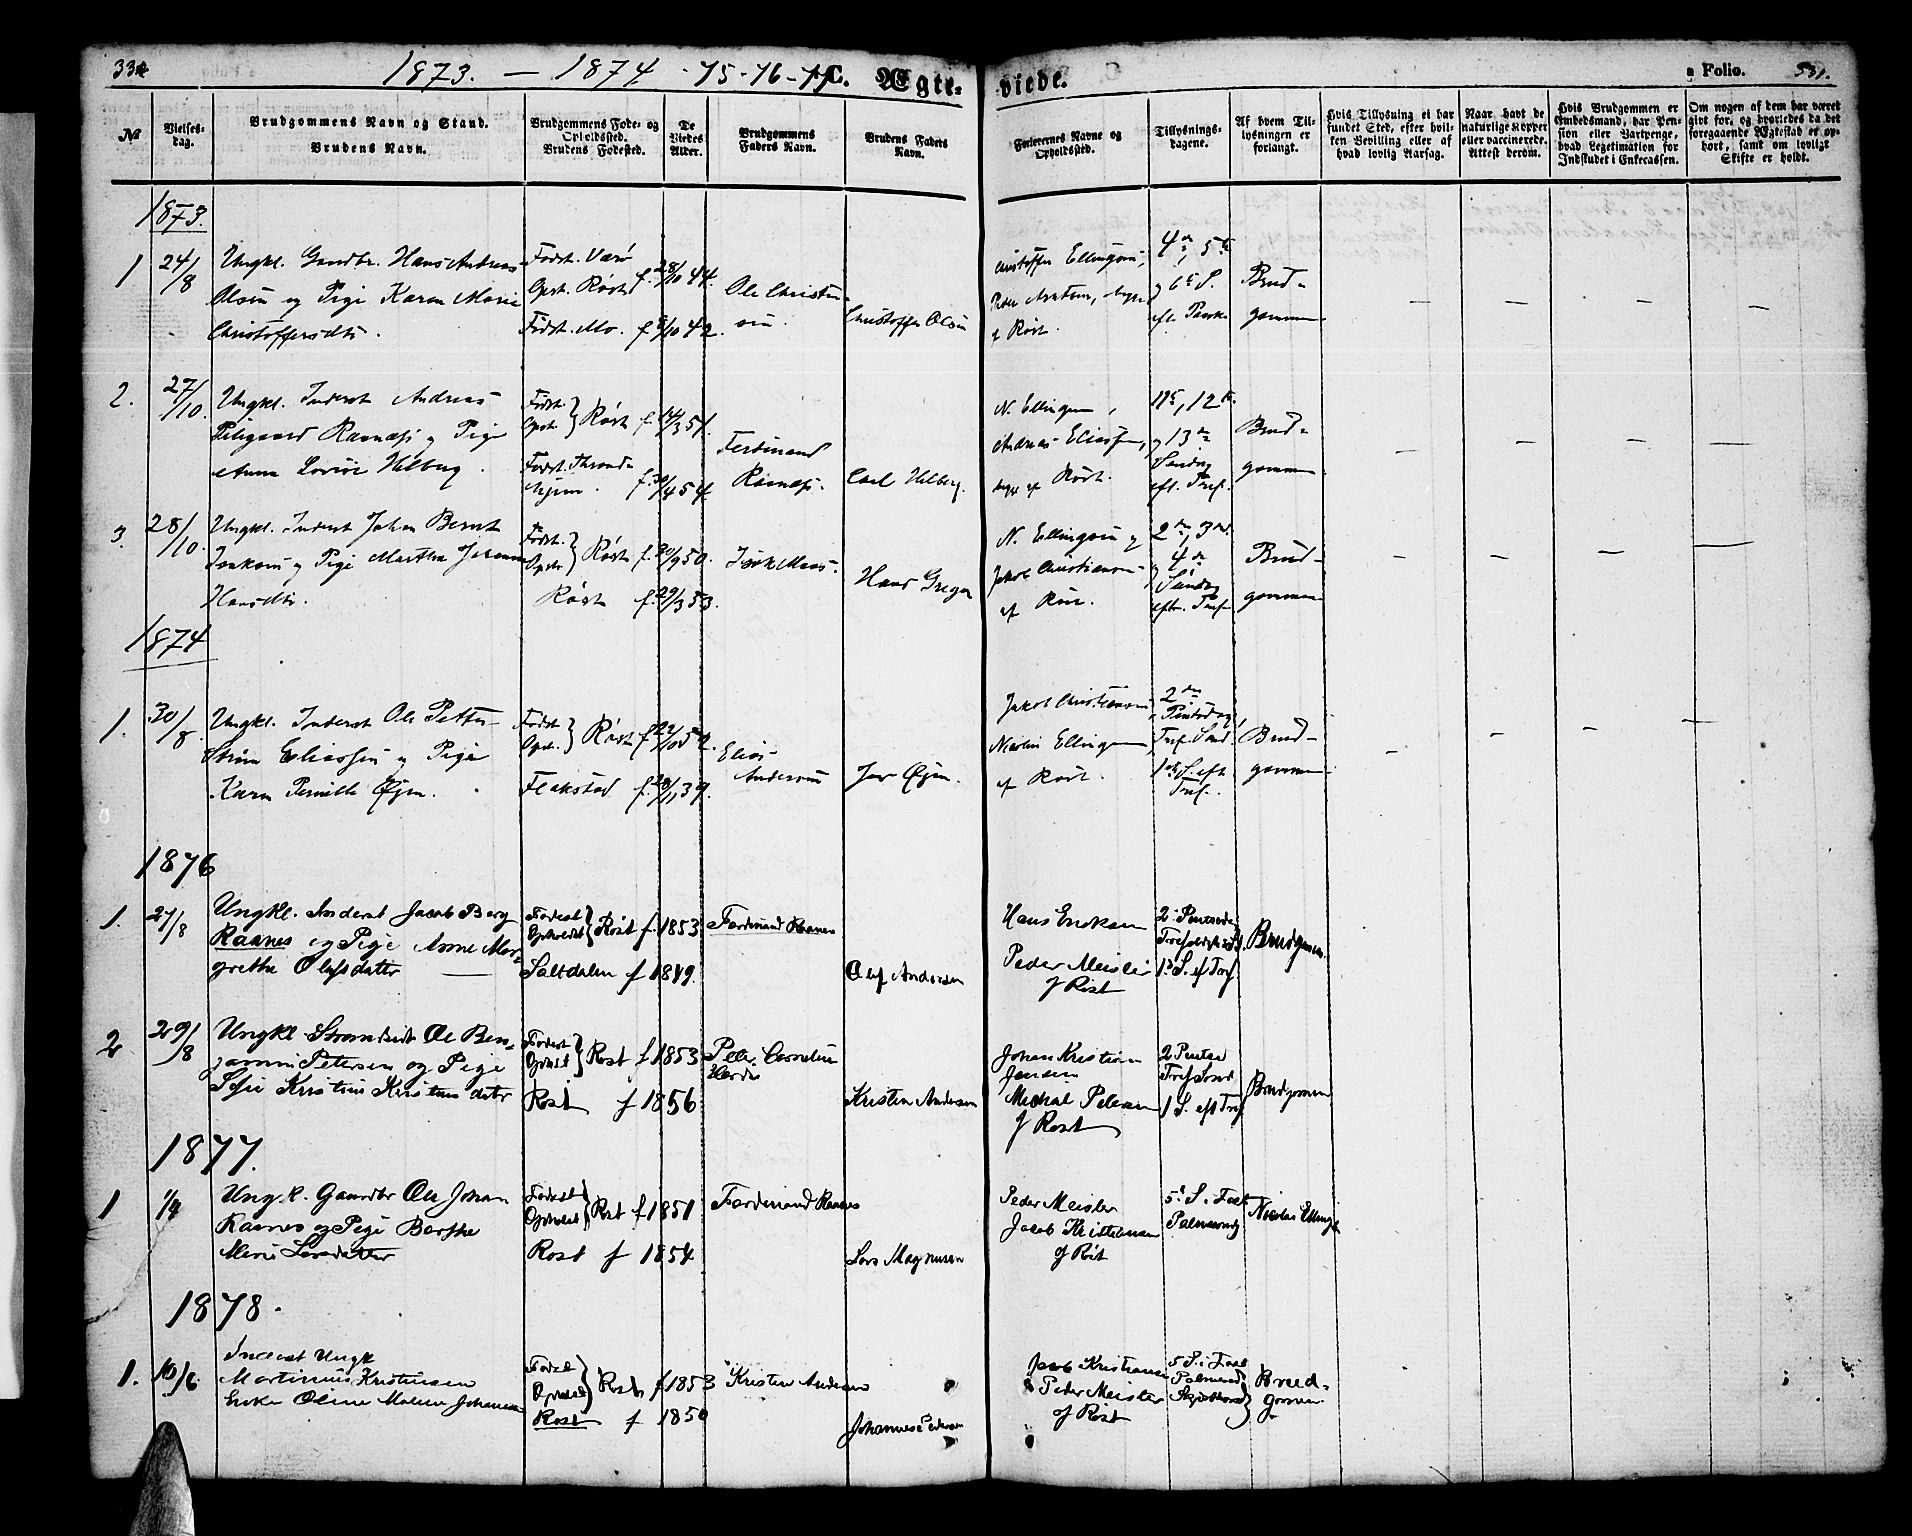 1873. — 1874 -75-76-77 C. Ægte-
viede.
Folio. 331.
№
Vielses-
dag.
Brudgommens Navn og Stand.
Brudens Navn.
Brudgommens Føde- og
Opholdssted.
Brudens Fødested.
De
Viedes
Alder.
Brudgommens
Faders Navn.
Brudens Faders
Navn.
Forlovernes Navne og
Opholdssted.
Tillysnings-
dagene.
Af hvem Til-
lysningen er
forlangt.
Hvis Tillysning ei har
fundet Sted, efter hvil-
ken Bevilling eller af
hvad lovlig Aarsag.
Naar havt de
naturlige Kopper
eller vaccinerede.
Attest derom.
Hvis Brudgommen er
Embedsmand, har Pen-
sion eller Vartpenge,
hvad Legetimation for
Indskudet i Enkecassen.
Om nogen af dem har været
givt før, og hvorledes da det
foregaaende Ægteskab er op-
hørt, samt om lovligt
Skifte er holdt.
1873.
1 24/8
Ungkl. Gaardbr. Hans Andreas
Olsen og Pige Karen Marie
Christoffersdtr.
Født. Værø
Opst. Røst f. 28/10 44.
Født. Mo. f. 5/10 42.
Ole Christen-
sen.
Christoffer Olsen
Christoffer Ellingsen,
Peder
af Røst.
4de, 5te
og 6te S.
eft. Paaske
Brud-
gommen
2. 27/10.
Ungkl. Inderst Andreas
Ravnaas og Pige
Anna Lovise Hilberg.
Født.
Opst. } Røst f. 14/3 51.
Født. Thrond-
hjem. f. 30/4 54.
Ferdinand
Ravnaas.
Carl Hilberg.
N. Ellingsen,
Andreas Eliassen,
begge af Røst.
11te, 12te
og 13de
Søndag
eft. Tref.
Brud-
gommen
3. 28/10.
Ungkl. Inderst Johan Bernt
Isaksen og Pige Martha Johanna
Hansdtr.
Født.
Opst. } Røst f. 20/9 50.
Røst f. 29/3 53.
Isak Maas.
Hans Greger
N. Ellingsen og
Jakob Christiansen
af Røst.
2den, 3die
og 4de
Søndag
eftr. Tref.
Brud-
gommen
1874
1. 30/8.
Ungkl. Inderst Ole Petter
Strøm Eliassen og Pige
Karen Pernille Øjen.
Født
Opst. } Røst f. 22/10 52.
Flakstad f. 28/11 39.
Elias
Andersen
Jar Øjen.
Jakob Christiansen
Martin Ellingsen
af Røst.
2den
Pintsedag,
Tref. Sønd,
1ste S. eft
Tref.
Brud-
gommen
1876
1. 27/8
Ungkl. Inderst Jacob Berg
Raanes og Pige Anne Mar-
grethe Olafsdatter
Fødest
Opholdst } Røst f. 1853
Saltdalen f 1849.
Ferdinand Raanes
Oluf Andersen
Hans Eriksen
Peder Meisler
af Røst
2 Pintsedag
Trefoldigh S.
1ste S. ef Tref
Brudgomen
2 29/8
Ungkl Strandsidr Ole Ben-
jamin Petersen og Pige
Sofie Kristine Kristensdatter
Fødest
Opholdst } Røst f 1853
Røst f 1856
Peder Cornelius
Kristen Andersen
Johan Kristian
Jensen
Mickal Petersen
af Røst
2 Pintsed
Tref Sønd
1 S. eft Tref
Brudgomen
1877.
1 1/4
Ungk. Gaardbr Ole Johan
Raanes og Pige Berthe
Marie Larsdatter
Fødest
Opholdst } Røst f 1851
Røst f 1854
Ferdinand Raanes
Lars Magnusen
Peder Meisler
Jacob Kristiansen
af Røst
5te S. i Faste
Palmesøndg
Nicolai Ellings
1878.
1. 10/6
Inderst Ungk
Martinius Kristensen
Enke Oline Maline Johannes
Fødest
Opholdst } Røst f 1853
Røst f 1850
Kristen Andersen
Johannes Pedersen
Jacob Kristiansen
Peder Meisler
af Røst
5 S. i Faste
Palmesønd
Brud-
gomen